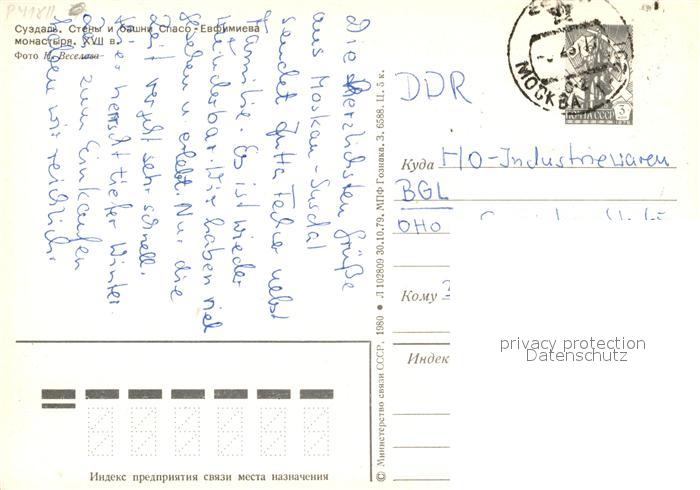 P41811
Суздаль. Стены и башни Спасо-Евфимиева
монастыря. XVII в.
Фото Н. Веселова
Die herzlichsten Grüße
aus Moskau - Susdal
sendet Jutta nebst
Familie. Es ist wieder
wunderbar. Wir haben viel
gesehen u. erlebt. Nur die
Zeit vergeht sehr schnell.
Hier herrscht tiefer Winter.
zum Einkaufen
haben wir reichlich.
© Министерство связи СССР, 1980 ● Л 102809 30.10.79. МПФ Гознака. З. 6588. Ц. 5 к.
МОСКВА
ПОЧТА СССР 3
DDR
Куда HO-Industriewaren
BGL
ОНО
Кому
Индек
privacy protection
Datenschutz
Индекс предприятия связи места назначения